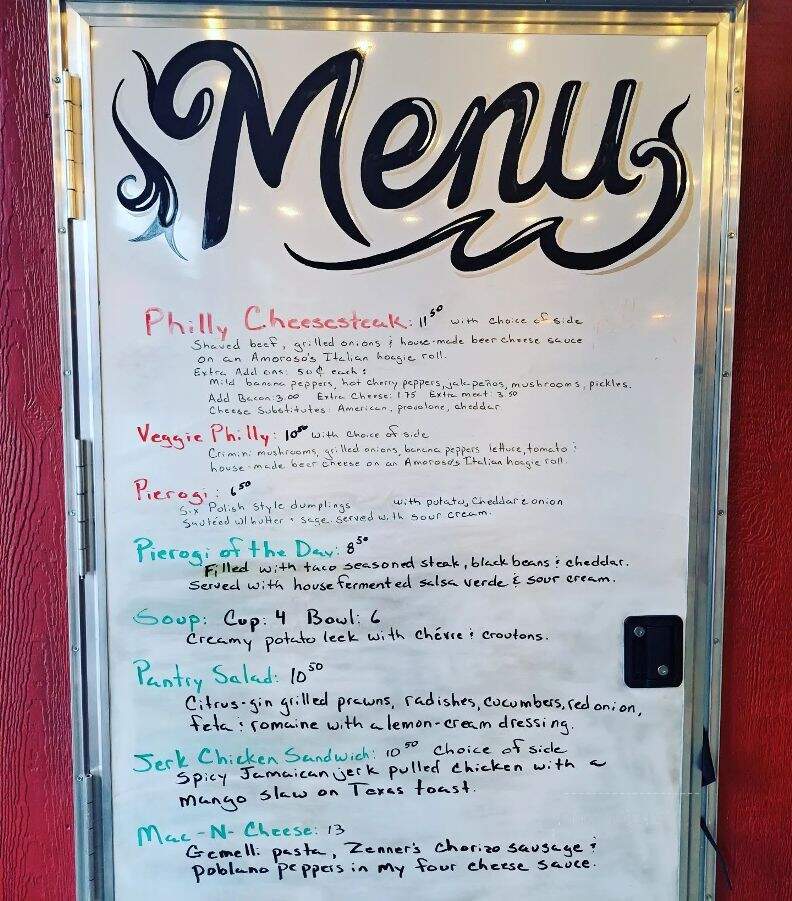 Menu
Philly Cheesesteak: 11⁵⁰ with choice of side
Shaved beef, grilled onions & house-made beer cheese sauce
on an Amoroso's Italian hoagie roll.
Extra Add ons: 50¢ each:
Mild banana peppers, hot cherry peppers, jalapeños, mushrooms, pickles.
Add Bacon: 3.00 Extra Cheese: 1.75 Extra meat: 3.50
Cheese Substitutes: American, provolone, cheddar
Veggie Philly: 10⁵⁰ with choice of side
Crimini mushrooms, grilled onions, banana peppers lettuce, tomato &
house-made beer cheese on an Amoroso's Italian hoagie roll.
Pierogi: 6⁵⁰
Six Polish Style dumplings with potato, cheddar & onion
Sautéed w/ butter & sage. served with sour cream.
Pierogi of the Day: 8⁵⁰
Filled with taco seasoned steak, black beans & cheddar.
Served with house fermented salsa verde & sour cream.
Soup: Cup: 4 Bowl: 6
Creamy potato leek with chévre & croutons.
Pantry Salad: 10⁵⁰
Citrus-gin grilled prawns, radishes, cucumbers, red onion,
feta & romaine with a lemon-cream dressing.
Jerk Chicken Sandwich: 10⁵⁰ Choice of side
Spicy Jamaican jerk pulled chicken with a
mango slaw on Texas toast.
Mac-N-Cheese: 13
Gemelli pasta, Zenner's chorizo sausage &
poblano peppers in my four cheese sauce.